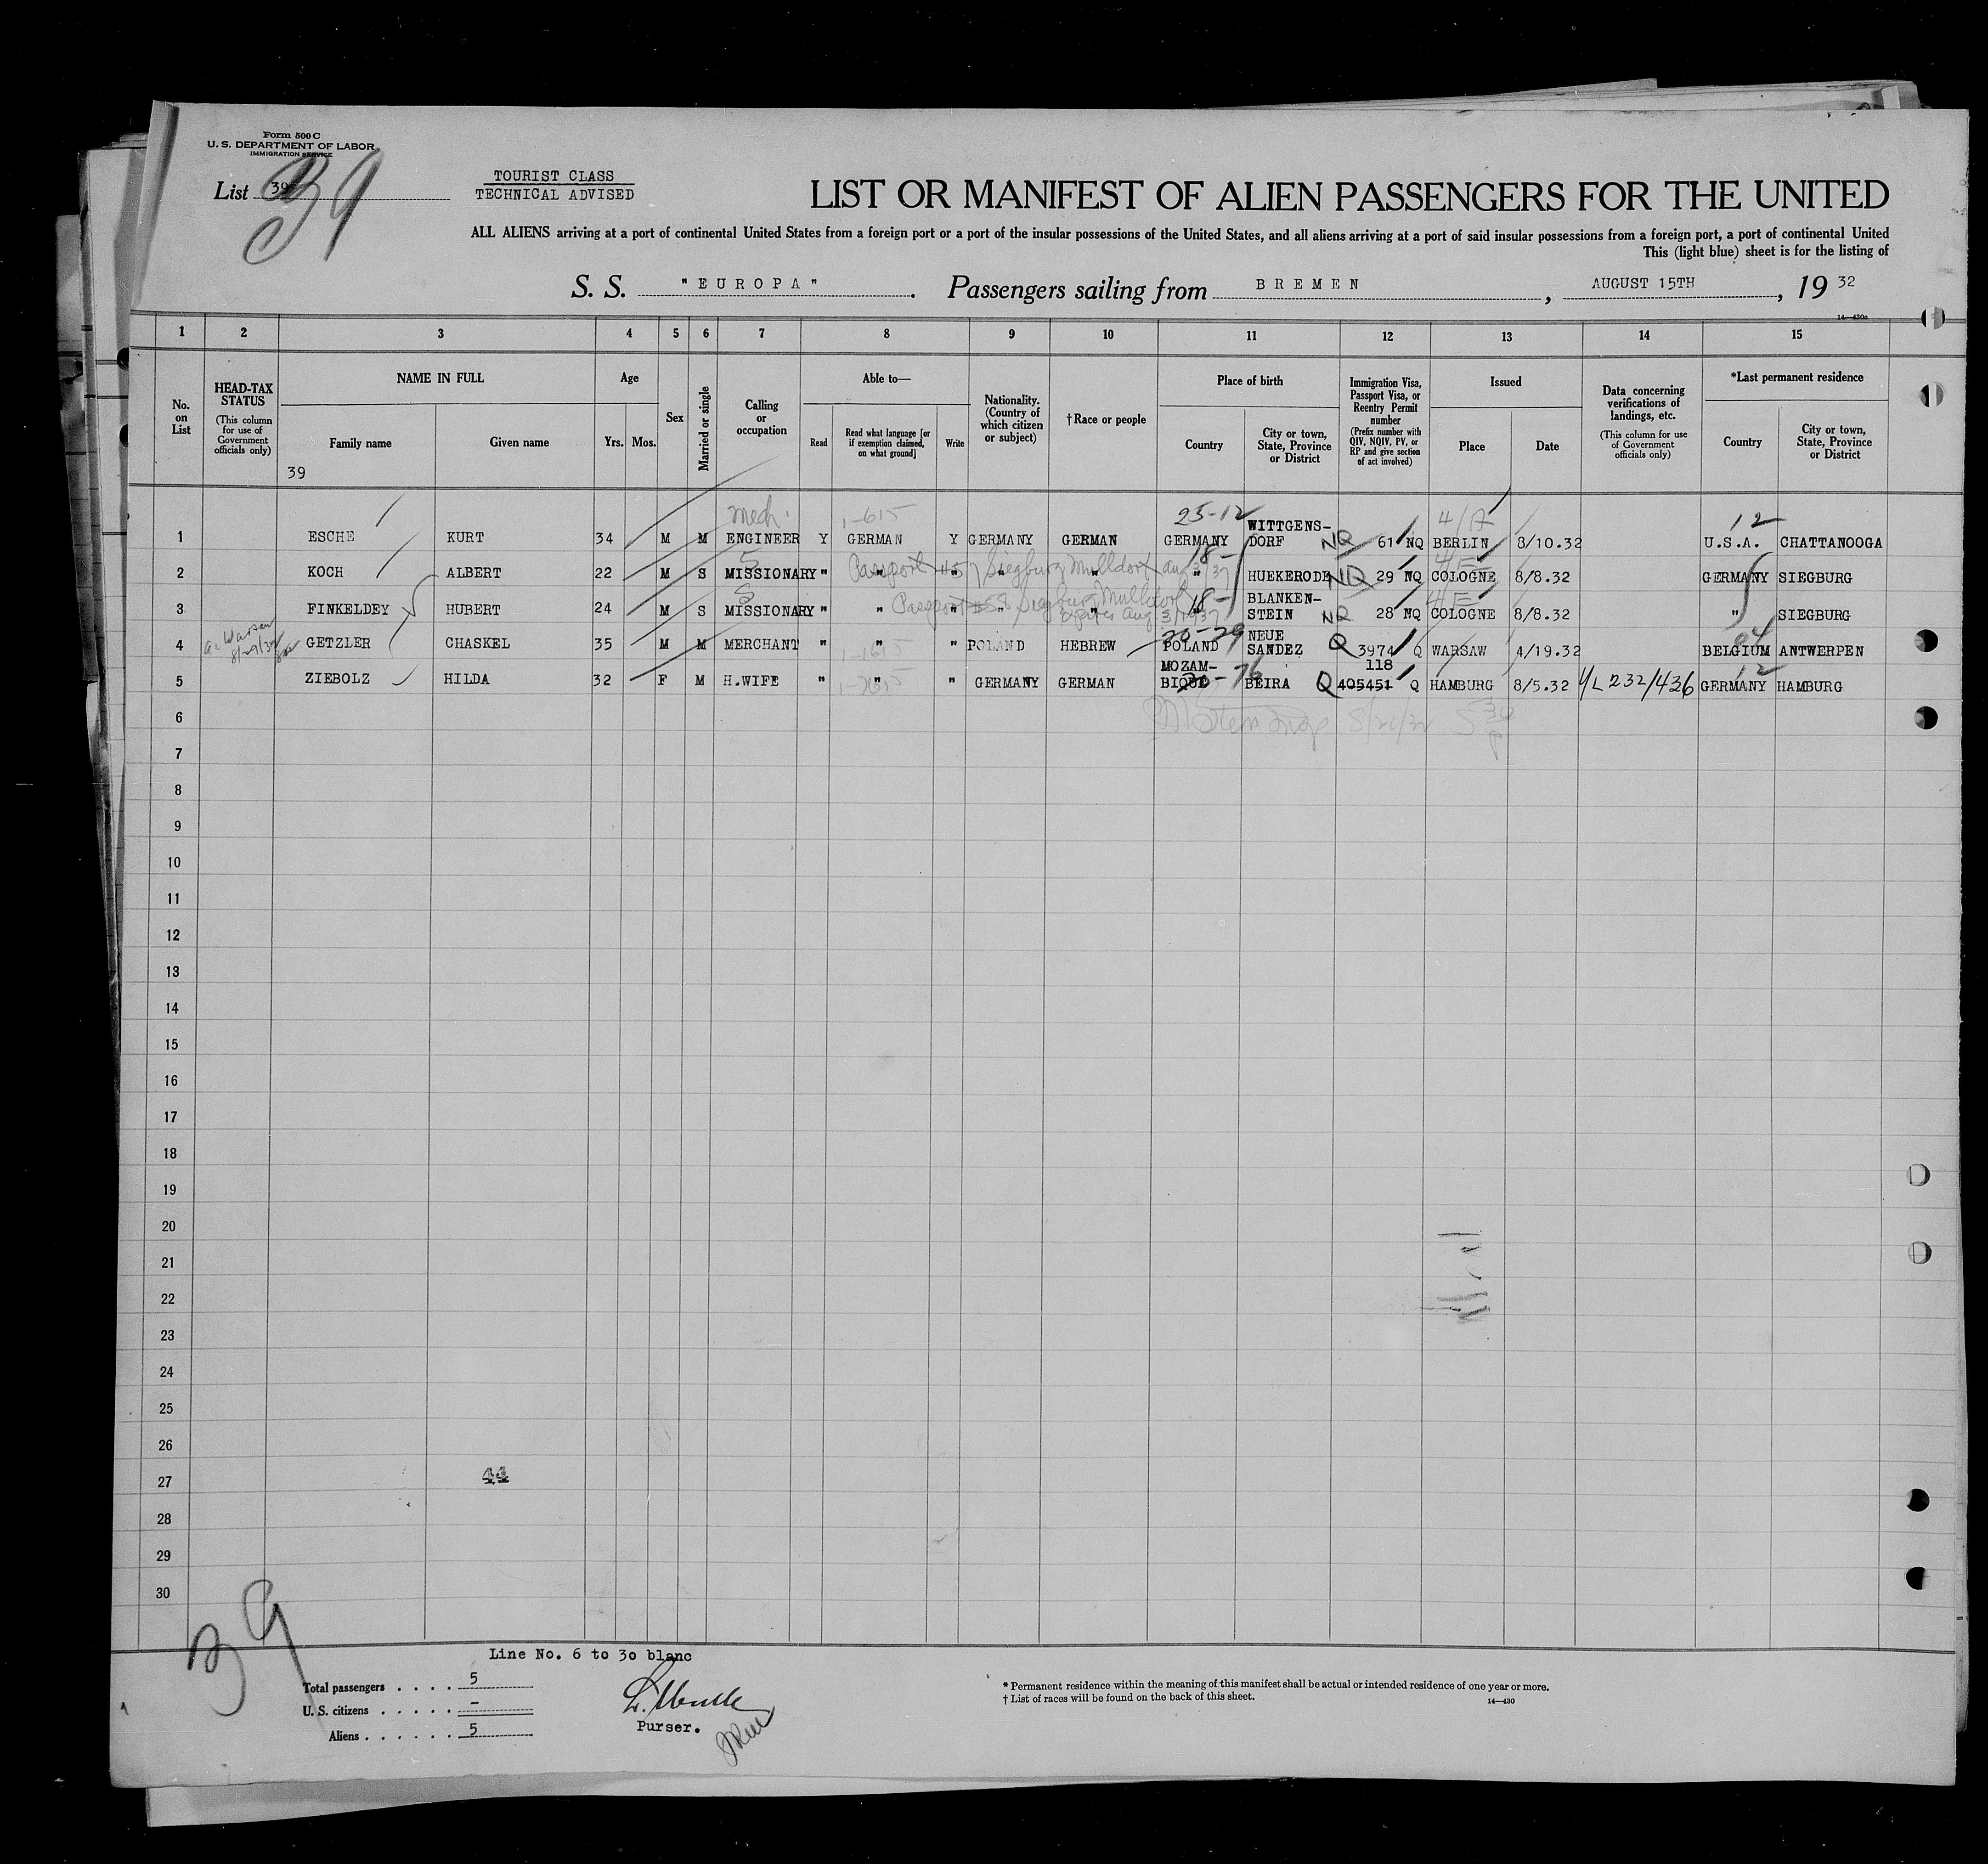 Form 500 C
U. S. DEPARTMENT OF LABOR
IMMIGRATION SERVICE
List 39
39
TOURIST CLASS
TECHNICAL ADVISED
LIST OR MANIFEST OF ALIEN PASSENGERS FOR THE UNITED
ALL ALIENS arriving at a port of continental United States from a foreign port or a port of the insular possessions of the United States, and all aliens arriving at a port of said insular possessions from a foreign port, a port of continental United
This (light blue) sheet is for the listing of
S. S. "EUROPA". Passengers sailing from BREMEN, AUGUST 15TH, 19 32
14—430a
1 2 3 4 5 6 7 8 9 10 11 12 13 14 15
No. on List
HEAD-TAX STATUS (This column for use of Government officials only)
NAME IN FULL
Family name
Given name
39
Age
Yrs. Mos.
Sex
Married or single
Calling or occupation
Able to—
Read
Read what language [or if exemption claimed, on what ground]
Write
Nationality. (Country of which citizen or subject)
†Race or people
Place of birth
Country
City or town, State, Province or District
Immigration Visa, Passport Visa, or Reentry Permit number (Prefix number with QIV, NQIV, PV, or RP and give section of act involved)
Issued
Place
Date
Data concerning verifications of landings, etc. (This column for use of Government officials only)
*Last permanent residence
Country
City or town, State, Province or District
Mech. 1-615 25-12 4/A 12
1 ESCHE KURT 34 M M ENGINEER Y GERMAN Y GERMANY GERMAN GERMANY WITTGENS-DORF NQ 61 NQ BERLIN 8/10.32 U.S.A. CHATTANOOGA
5 18- 4/E
2 KOCH ALBERT 22 M S MISSIONARY " " " " " " HUEKERODE NQ 29 NQ COLOGNE 8/8.32 GERMANY SIEGBURG
Passport #57 Siegburg Mulldorf Aug 3/37
S 18- 4/E
3 FINKELDEY HUBERT 24 M S MISSIONARY " " " " " " BLANKEN-STEIN NQ 28 NQ COLOGNE 8/8.32 " SIEGBURG
Passport #58 Siegburg Mulldorf
Expires Aug 3/1937
Warsaw 8/29/32
1-1615 20-29 84
4 GETZLER CHASKEL 35 M M MERCHANT " " " POLAND HEBREW POLAND NEUE SANDEZ Q 3974 Q WARSAW 4/19.32 BELGIUM ANTWERPEN
76 118 12
5 ZIEBOLZ HILDA 32 F M H.WIFE " " " GERMANY GERMAN MOZAM-BIQUE BEIRA Q 405451 Q HAMBURG 8/5.32 YL 232/436 GERMANY HAMBURG
6
7
8
9
10
11
12
13
14
15
16
17
18
19
20
21
22
23
24
25
26
27 44
28
29
30
39
Line No. 6 to 30 blanc
Total passengers . . . . 5
U. S. citizens . . . . . –
Aliens . . . . . . 5
Purser.
* Permanent residence within the meaning of this manifest shall be actual or intended residence of one year or more.
† List of races will be found on the back of this sheet.
14—430